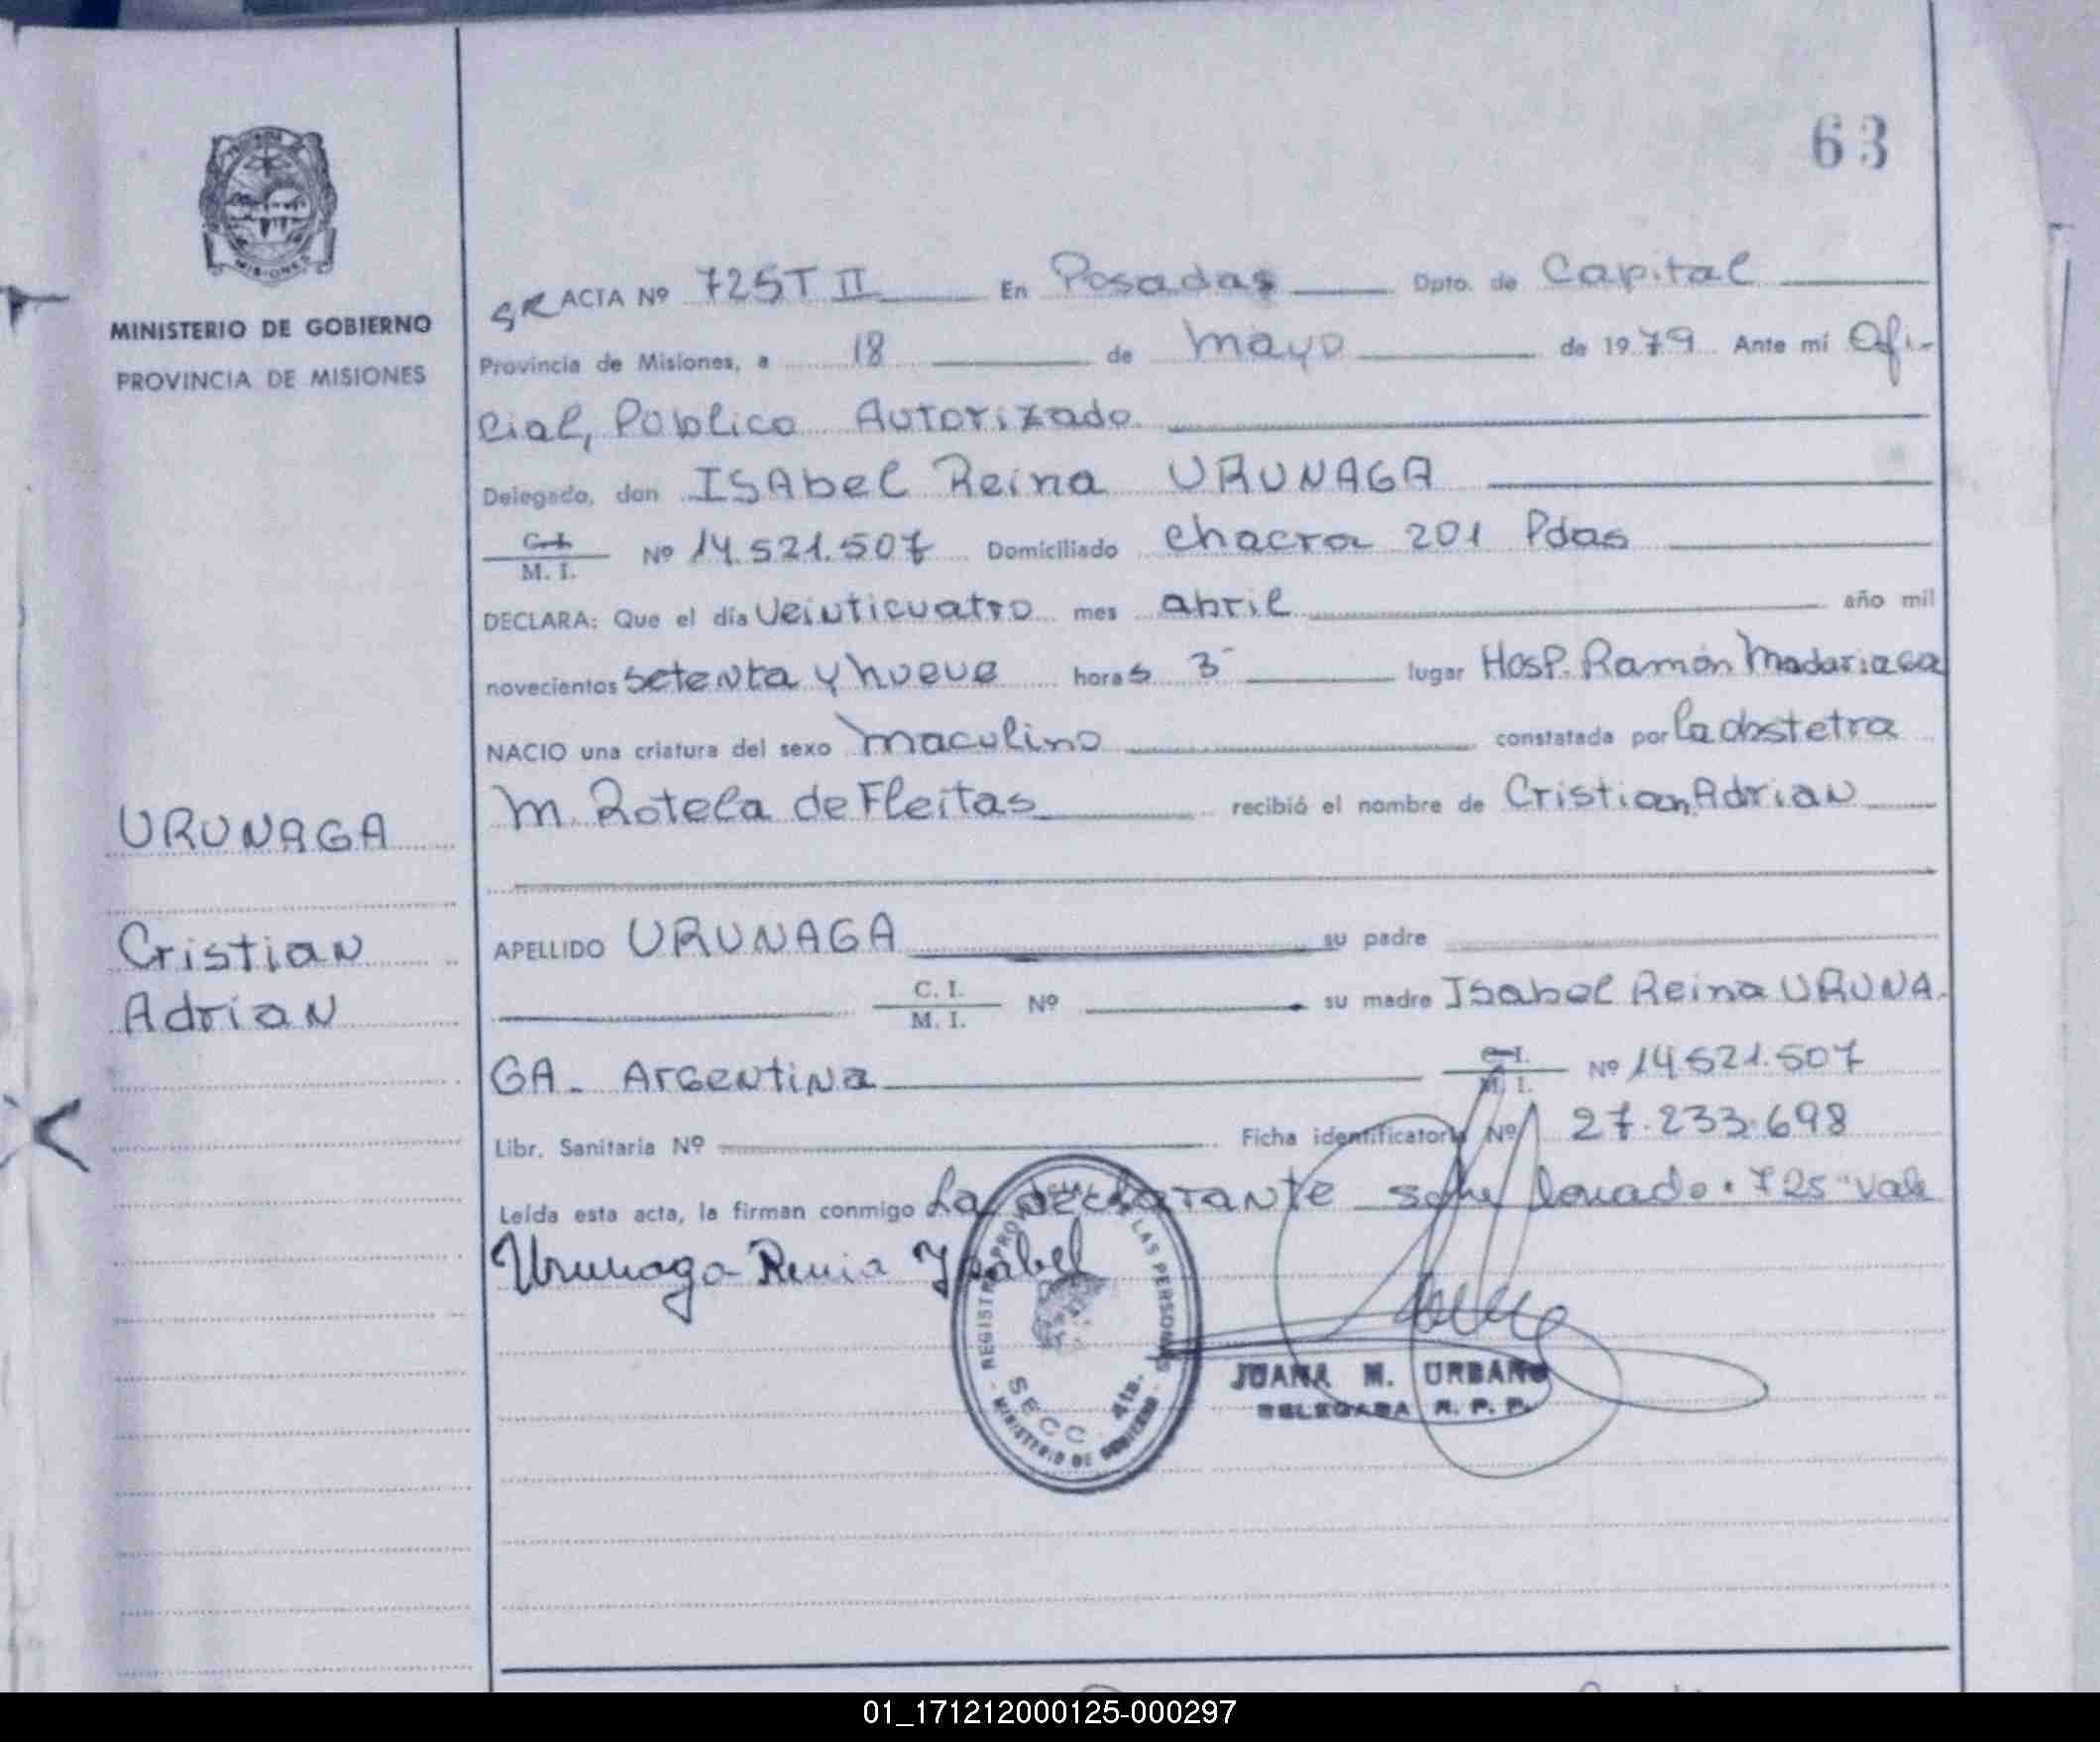 63
MISIONES
MINISTERIO DE GOBIERNO
PROVINCIA DE MISIONES
SR ACTA Nº 725 T II En Posadas Dpto. de Capital
Provincia de Misiones, a 18 de mayo de 1979 Ante mí Ofi-
cial, Público Autorizado.
Delegado, don ISAbel Reina URUNAGA
C.I. M. I. Nº 14.521.507 Domiciliado chacra 201 Pdas
DECLARA: Que el día Veinticuatro mes abril año mil
novecientos setenta y nueve horas 3- lugar Hosp. Ramón Madariaga
NACIO una criatura del sexo maculino constatada por la obstetra
M. Rotela de Fleitas recibió el nombre de Cristian Adrian
APELLIDO URUNAGA su padre
C. I. M. I. Nº su madre Isabel Reina URUNA-
GA - Argentina C.I. M. I. Nº 14.521.507
Libr. Sanitaria Nº Ficha identificatoria Nº 27.233.698
Leída esta acta, la firman conmigo La declarante 725 Vale
Urunaga Reina Ysabel
URUNAGA
Cristian
Adrian
REGISTRO PROV. LAS PERSONAS
SECC. 4ta.
MINISTERIO DE GOBIERNO
JUANA M. URBANO
DELEGADA R. P. P.
01_171212000125-000297